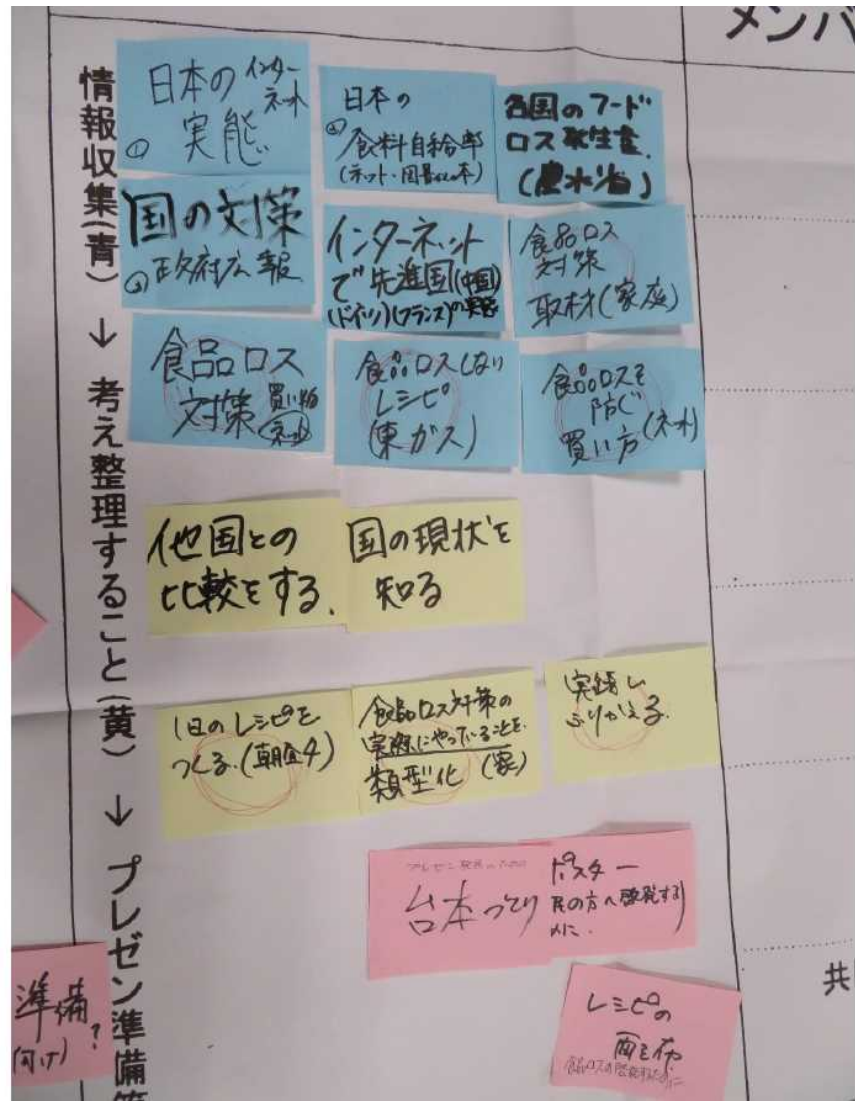 メンバ
情報収集(青) → 考え整理すること(黄) → プレゼン準備
日本の
インターネット
① 実態
日本の
②食料自給率
(ネット・図書館の本)
各国のフード
ロス発生量
(農水省)
国の対策
③政府広報
インターネット
で先進国(中国)
(ドイツ)(フランス)の実態
食品ロス
対策
取材(家庭)
食品ロス
対策 買い物
(ネット)
食品ロスしない
レシピ
(東ガス)
食品ロスを
防ぐ
買い方(ネット)
他国との
比較をする.
国の現状を
知る
1日のレシピを
つくる.(朝昼夕)
食品ロス対策の
実際にやっていることを.
類型化 (家)
実績
ふりかえる.
台本つくり
ポスター
民の方へ啓発する
レシピの
配布
準備
向け) ?
共